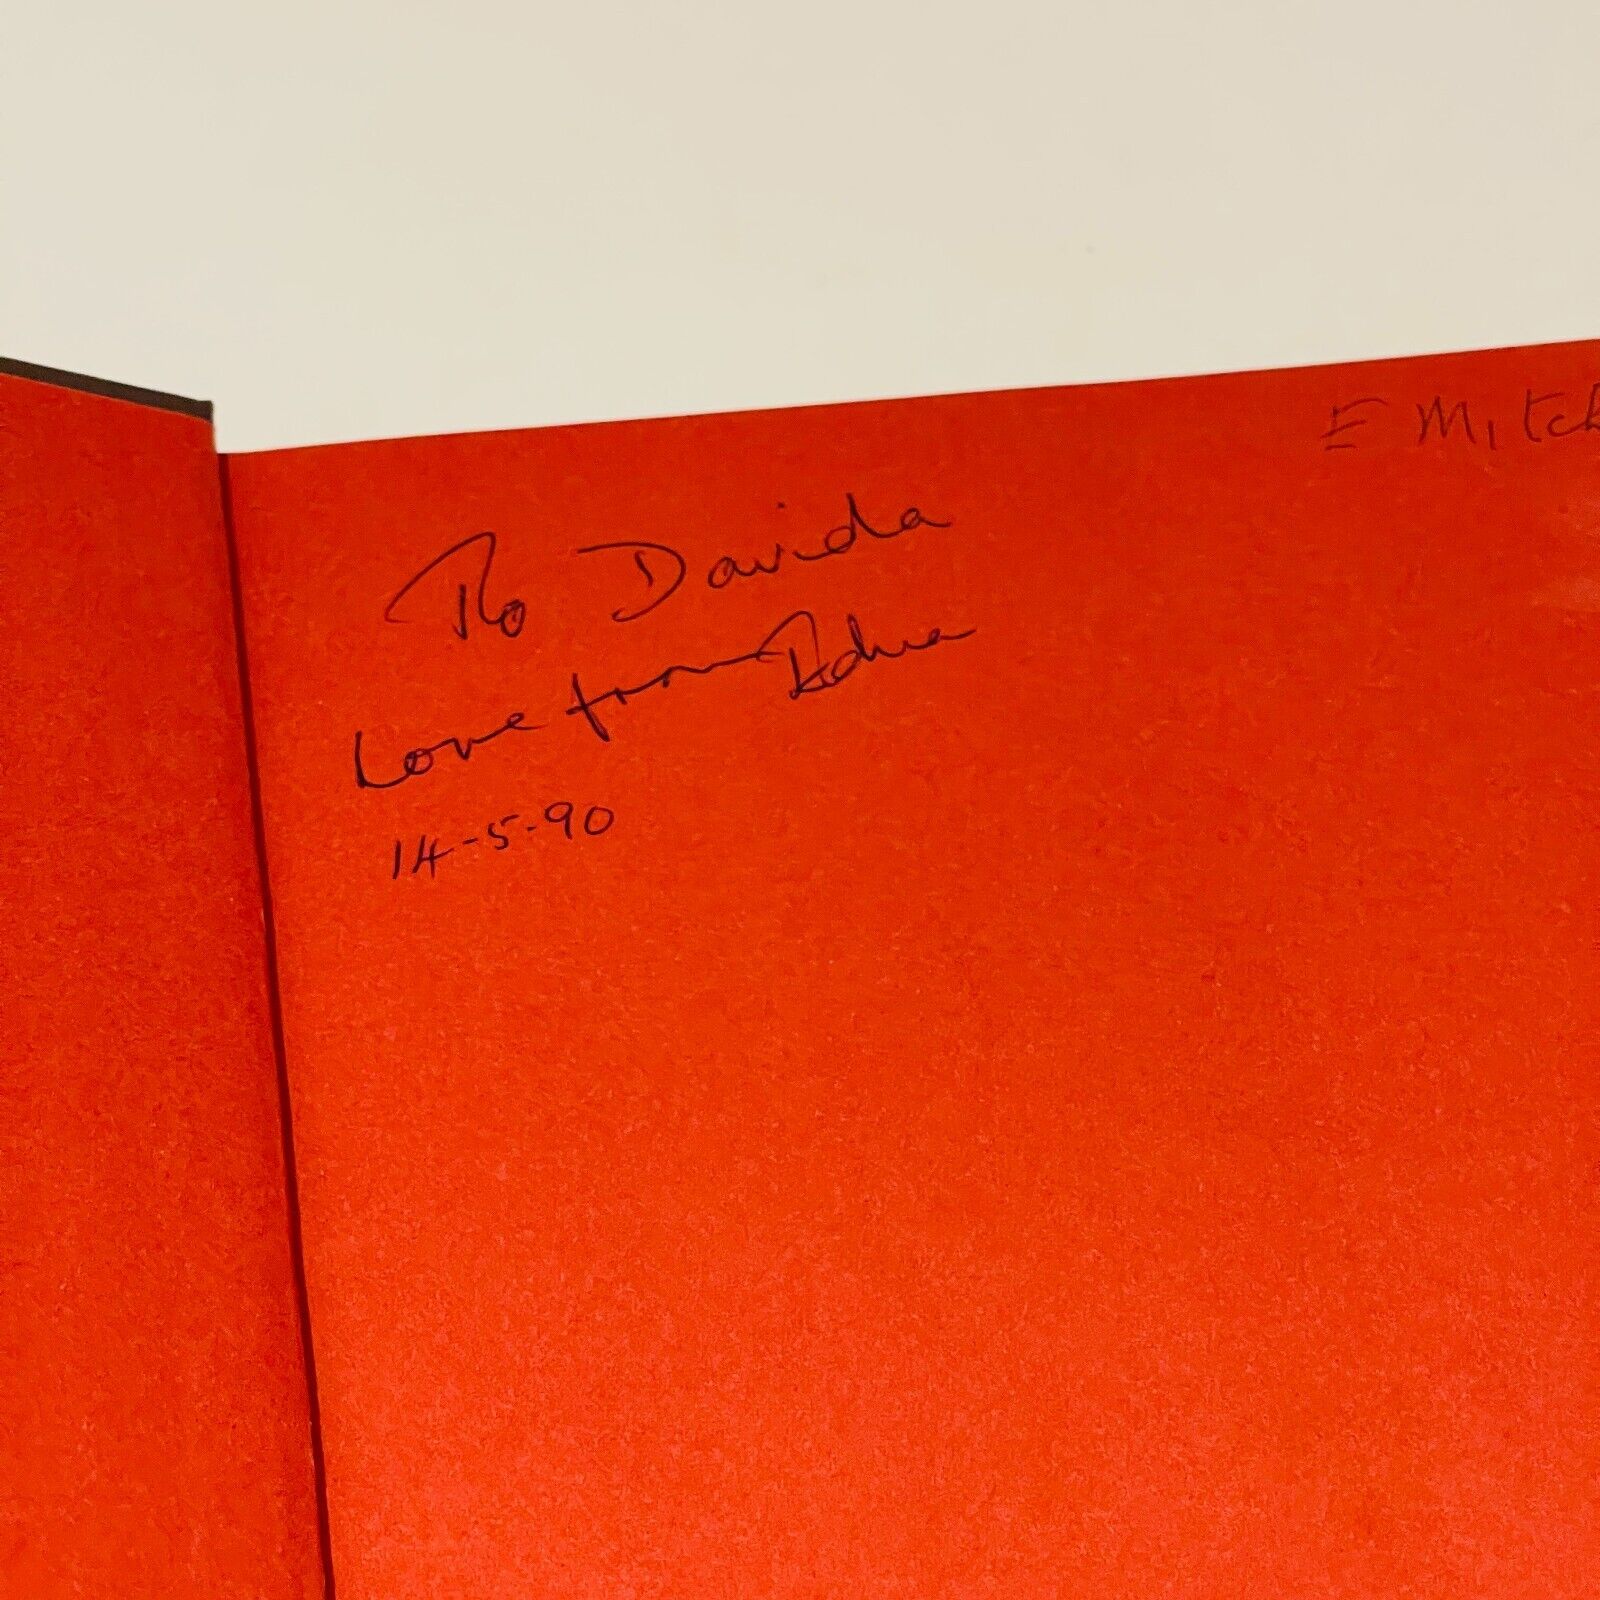 E Mitch
To Davida
Love from Edna
14-5-90